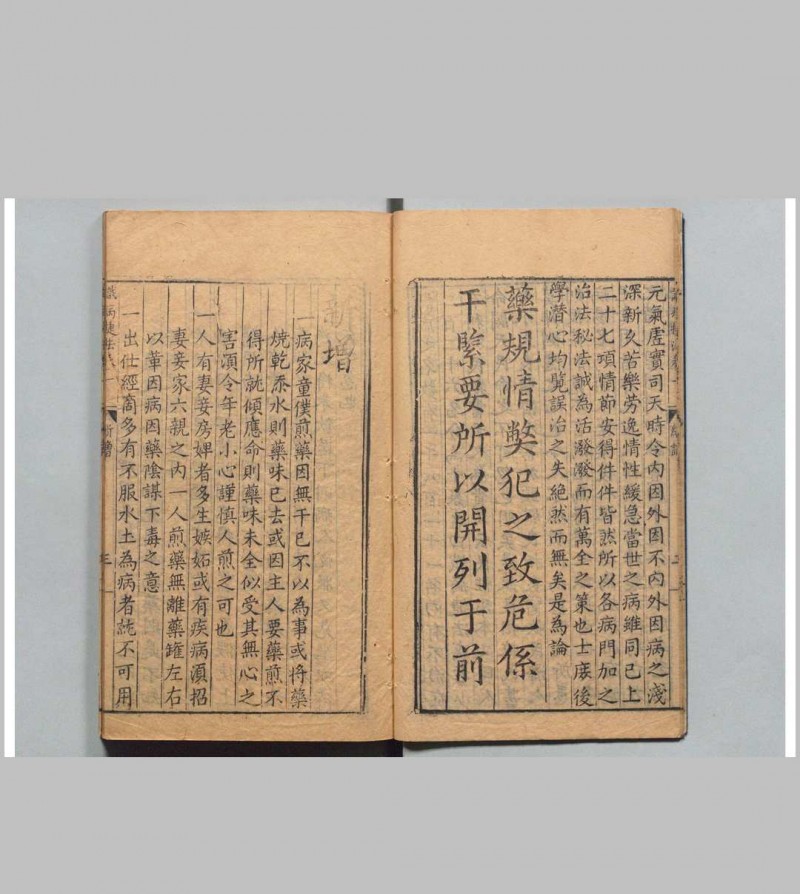 元氣虛實司天時令內因外因不內外因病之淺
深新久苦樂勞逸情性緩急當世之病雖同已上
二十七項情節安得件件皆然所以各病門加之
治法秘法誠為活潑潑而有萬全之策也士庶後
學潛心均覽誤治之失絕然而無矣是為論
藥規情獘犯之致危係
干緊要所以開列于前
新增
一病家童僕煎藥因無干已不以為事或將藥
燒乾添水則藥味已去或因主人要藥煎不
得所就傾應命則藥味未全似受其無心之
害須令年老小心謹慎人煎之可也
一人有妻妾房婢者多生嫉妬或有疾病須招
妻妾家六親之內一人煎藥無離藥罐左右
以葷因病因藥陰謀下毒之意
一出仕經商多有不服水土為病者統不可用
新增
三